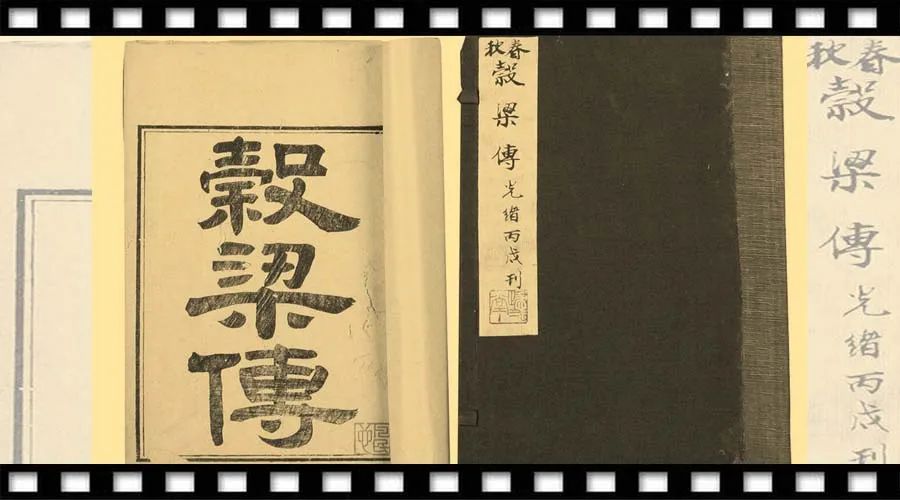 穀梁傳
春秋穀梁傳光緒丙戌刊
春秋穀梁傳光緒丙戌刊